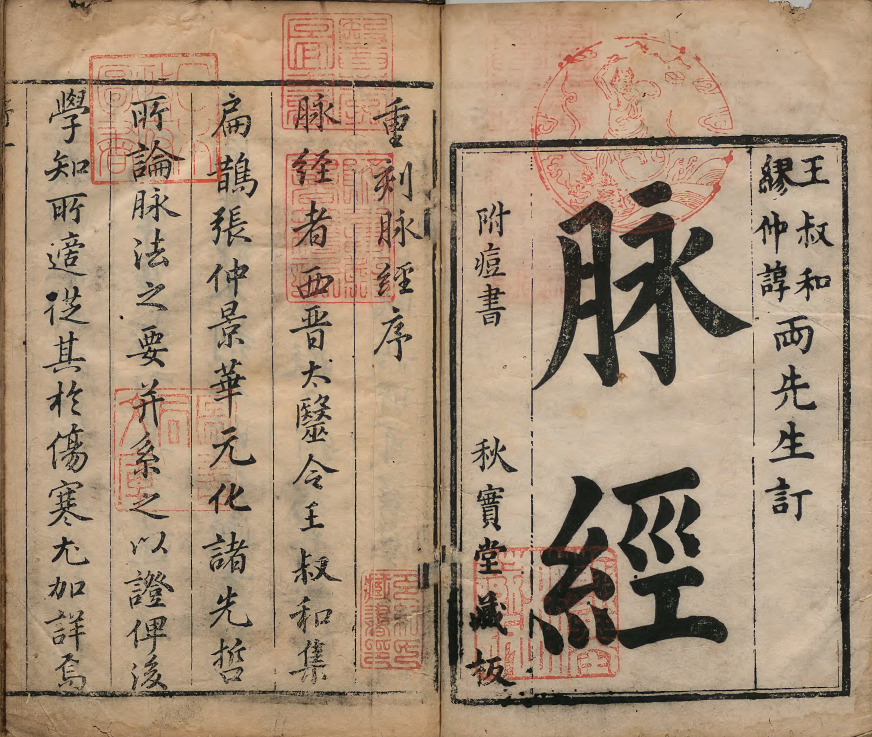 王叔和
繆仲諄
兩先生訂
脉經
附痘書
秋實堂藏板
重刻脉經序
脉經者西晋太醫令王叔和集
扁鵲張仲景華元化諸先哲
所論脉法之要并系之以證俾後
學知所適從其於傷寒尤加詳焉